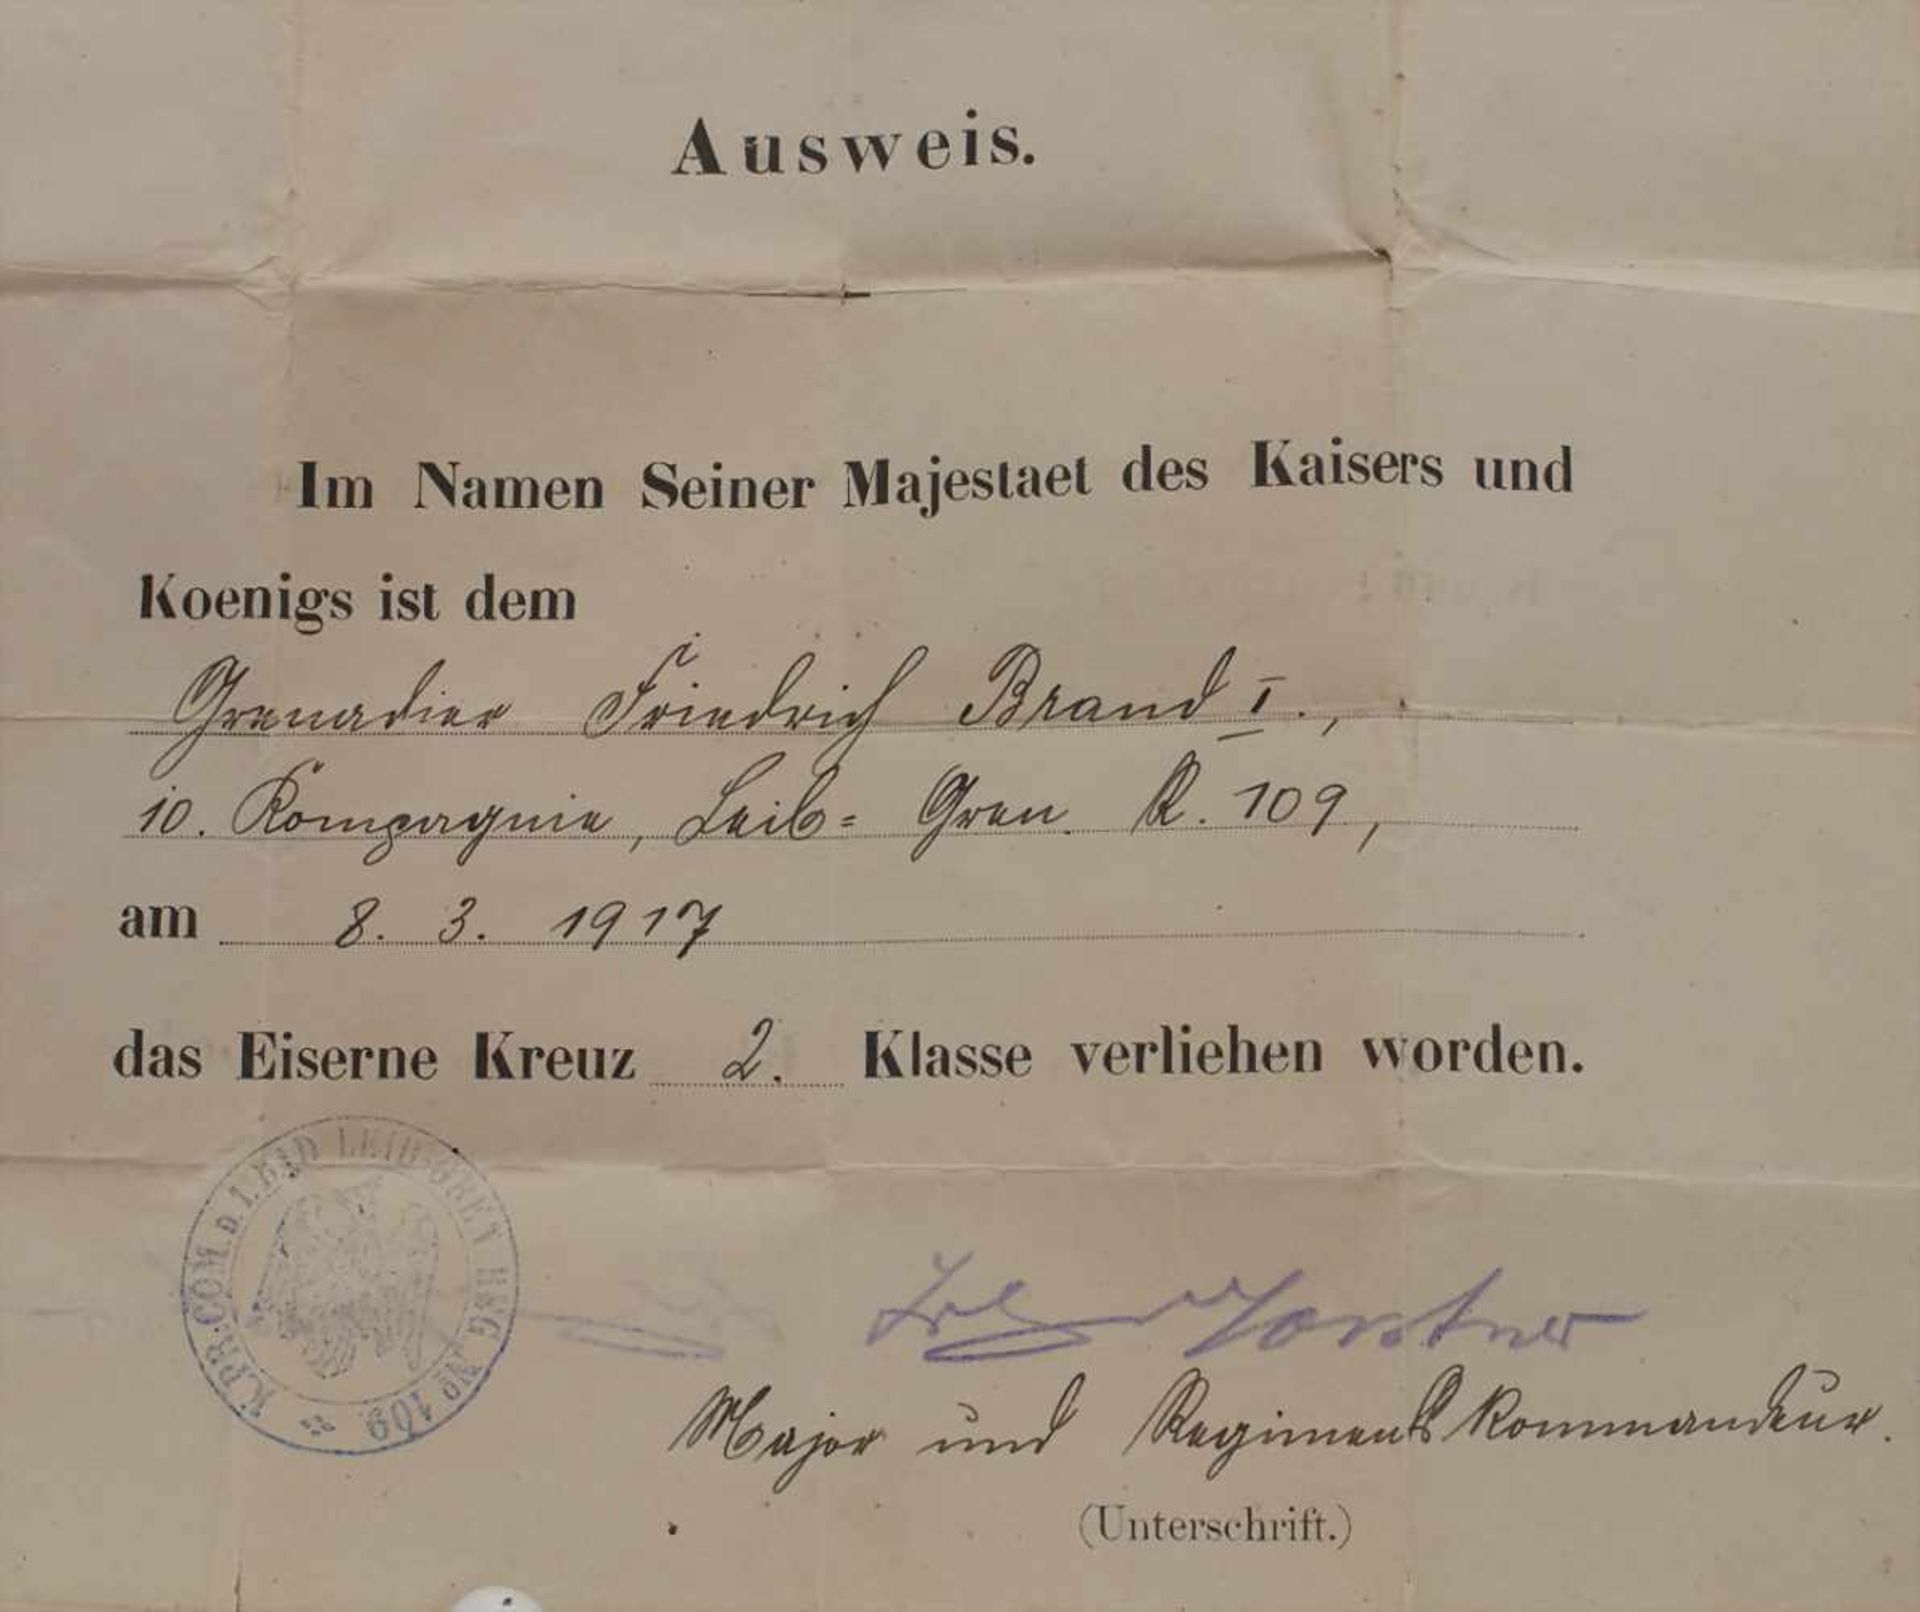 Ausweis.
Im Namen Seiner Majestaet des Kaisers und
Koenigs ist dem
Grenadier Friedrich Brand I.,
10. Kompagnie, Leib= Gren. R. 109,
am 8. 3. 1917
das Eiserne Kreuz 2. Klasse verliehen worden.
K.PR.COM.D.1.BAD LEIB-GRET REG. No 109
Frh v Forstner
Major und Regimentskommandeur.
(Unterschrift.)